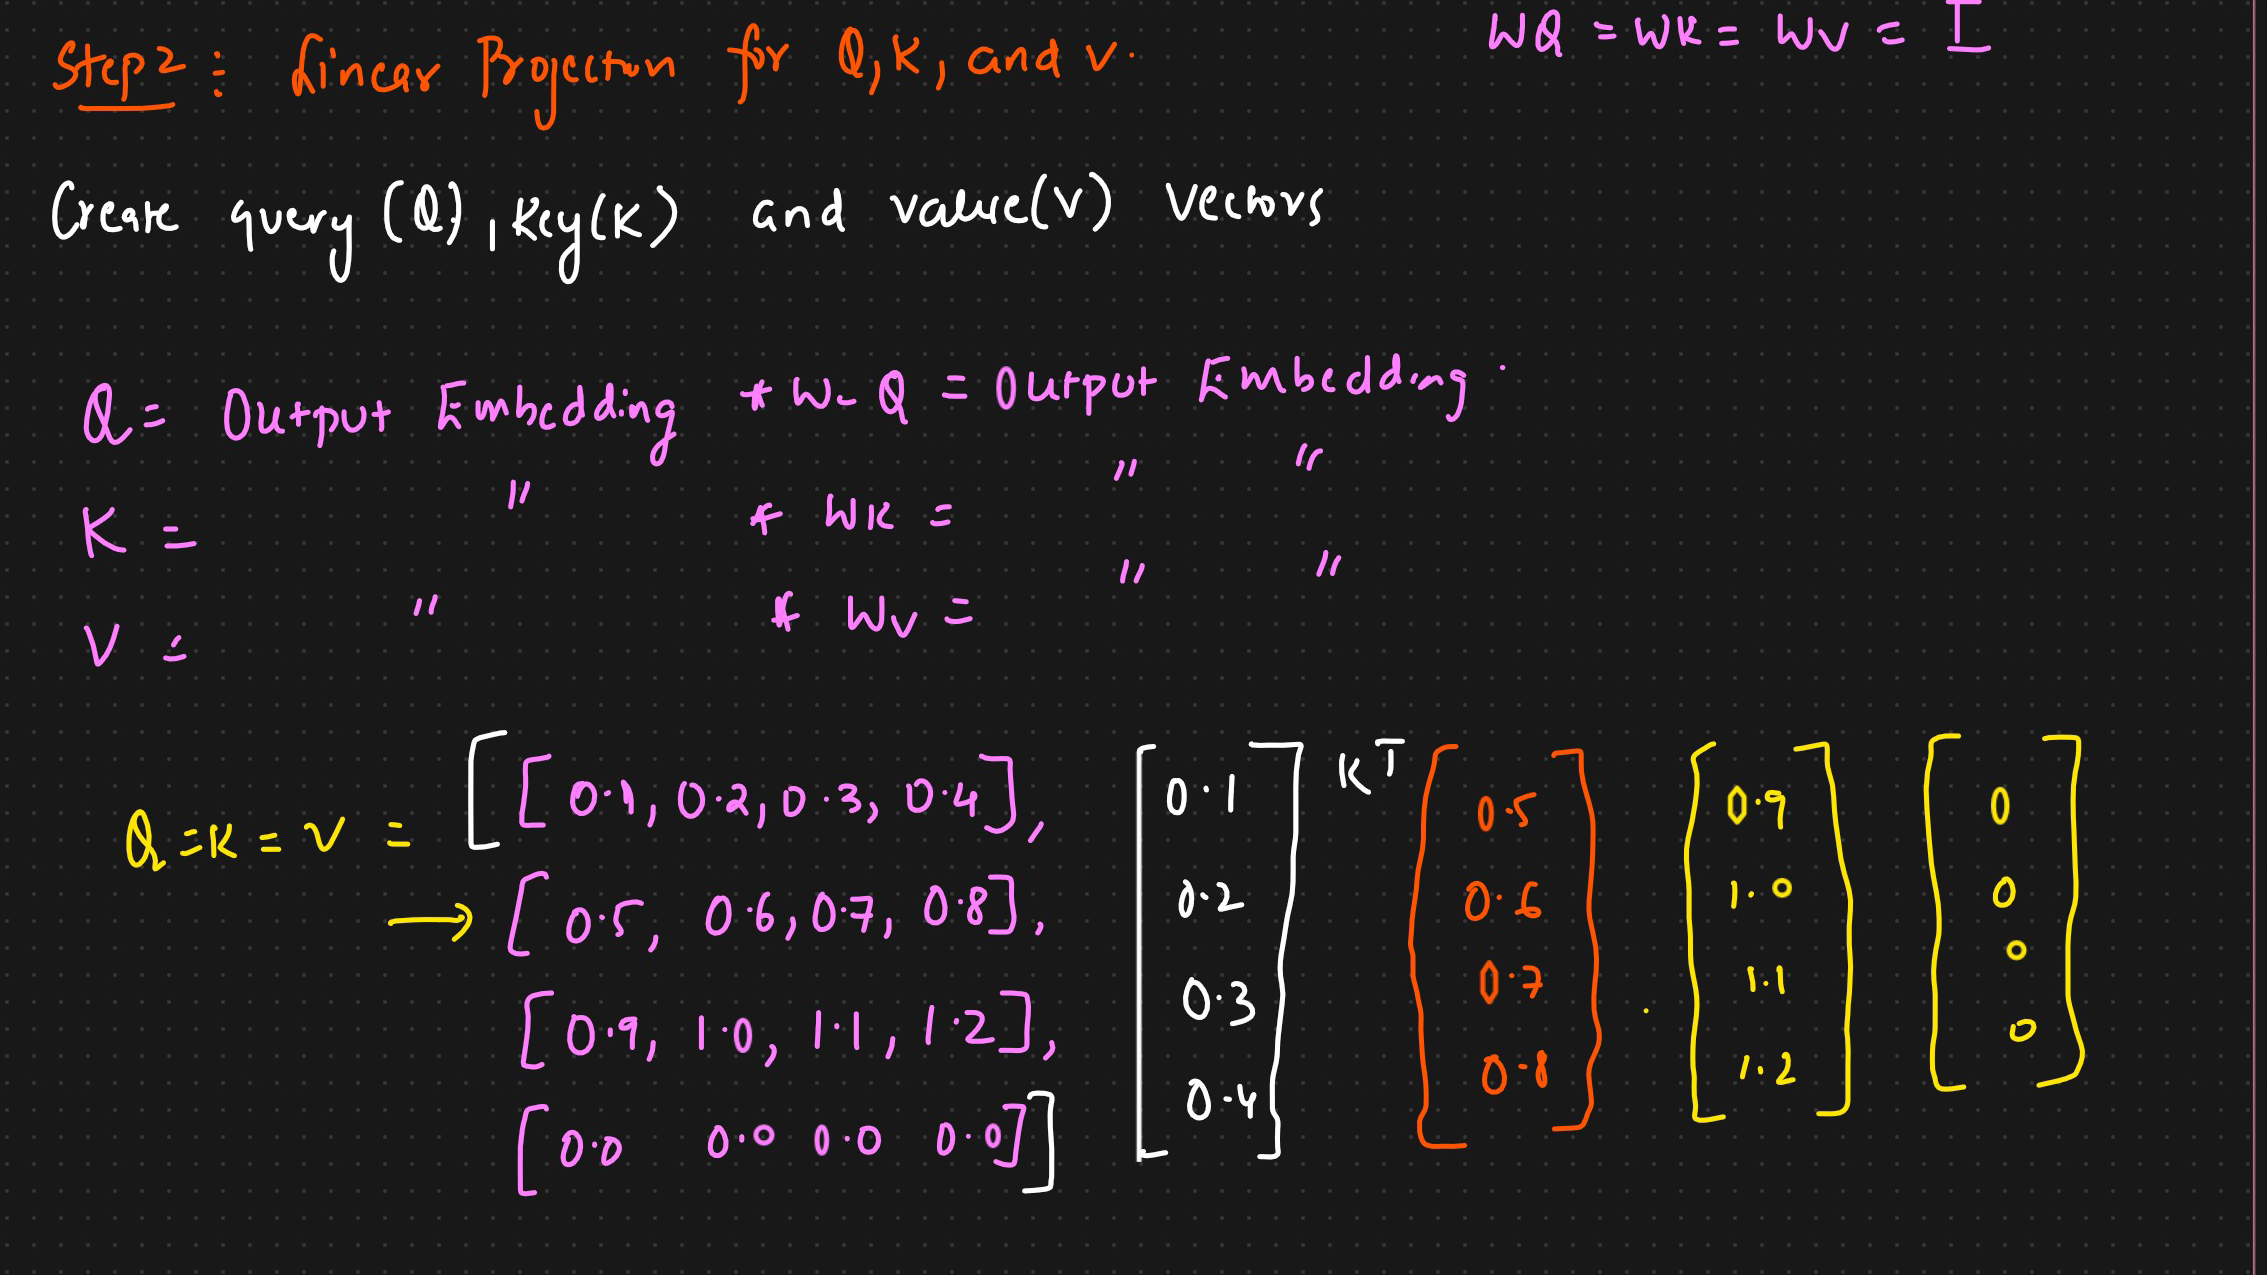 WQ = WK = WV = I
Step 2 : Linear Projection for Q, K, and V.
Create query (Q), Key(K) and value(V) vectors
Q = Output Embedding * W_Q = Output Embedding.
K = " * WK = " "
V = " * WV = " "
Q = K = V = [ [ 0.1, 0.2, 0.3, 0.4 ],
→ [ 0.5, 0.6, 0.7, 0.8 ],
[ 0.9, 1.0, 1.1, 1.2 ],
[ 0.0 0.0 0.0 0.0 ] ]
K^T
[ 0.1
0.2
0.3
0.4 ]
[ 0.5
0.6
0.7
0.8 ]
[ 0.9
1.0
1.1
1.2 ]
[ 0
0
0
0 ]